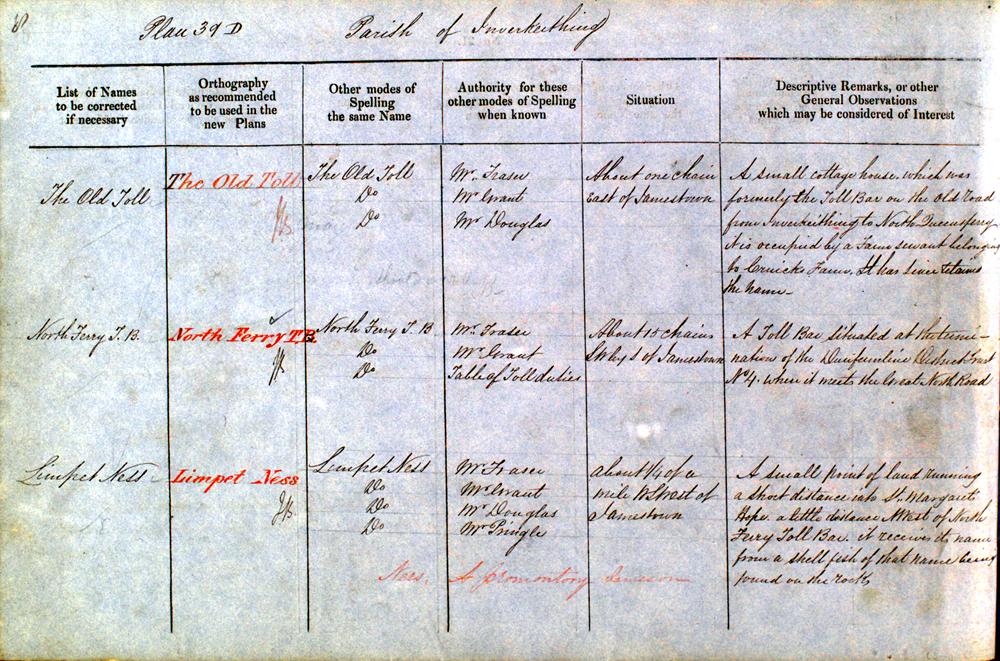 8
Plan 39 D Parish of Inverkeithing
List of Names
to be corrected
if necessary
Orthography
as recommended
to be used in the
new Plans
Other modes of
Spelling
the same Name
Authority for these
other modes of Spelling
when known
Situation
Descriptive Remarks, or other
General Observations
which may be considered of Interest
The Old Toll
The Old Toll
The Old Toll
Do
Do
Mr. Fraser
Mr Grant
Mr Douglas
About one chain
East of Jamestown
A small cottage house, which was
formerly the Toll Bar on the old road
from Inverkeithing to North Queensferry
it is occupied by a Farm servant belonging
to Cruicks Farm, It has since retained
the name.
North Ferry T. B.
North Ferry T.B.
North Ferry T. B
Do
Do
Mr. Fraser
Mr. Grant
Table of Toll duties
About 15 chains
S. of Jamestown
A Toll Bar situated at the termi-
nations of the Dunfermline District
No 4. where it meets the Great North Road
Limpet Ness
Limpet Ness
Limpet Ness
Do
Do
Do
Mr Fraser
Mr. Grant
Mr Douglas
Mr Pringle
about 1/4 of a
mile of
Jamestown
A small point of land running
a short distance into St. Margarets
Hope. a little distance N West of North
Ferry Toll Bar. it receives its name
from a shell fish of that name being
found on the rocks
Ness. A promontory Jameson